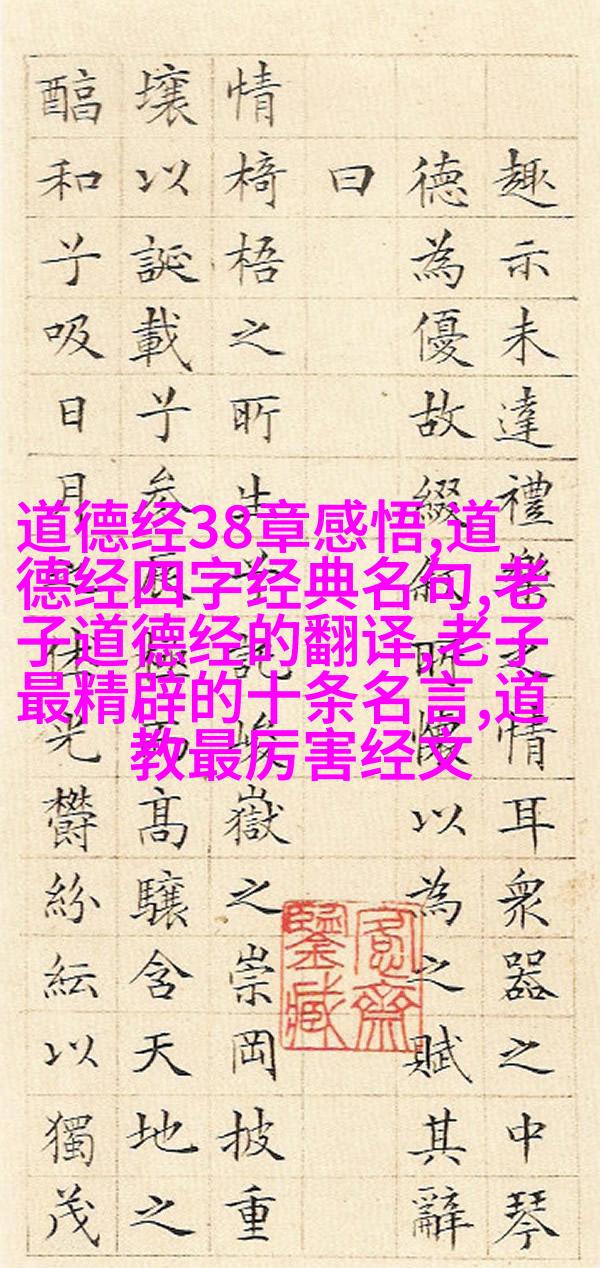 趣示未達禮樂之情耳衆器之中琴
德為優故綴叙所懷以為之賦其辭
曰
情椅梧之所生兮託峻嶽之崇岡披重
壤以誕載兮参辰極而高驤含天地之
醕和兮吸日月之休光鬱紛紜以獨茂
愙齋
鑒藏
道德经38章感悟,道
德经四字经典名句,老
子道德经的翻译,老子
最精辟的十条名言,道
教最厉害经文